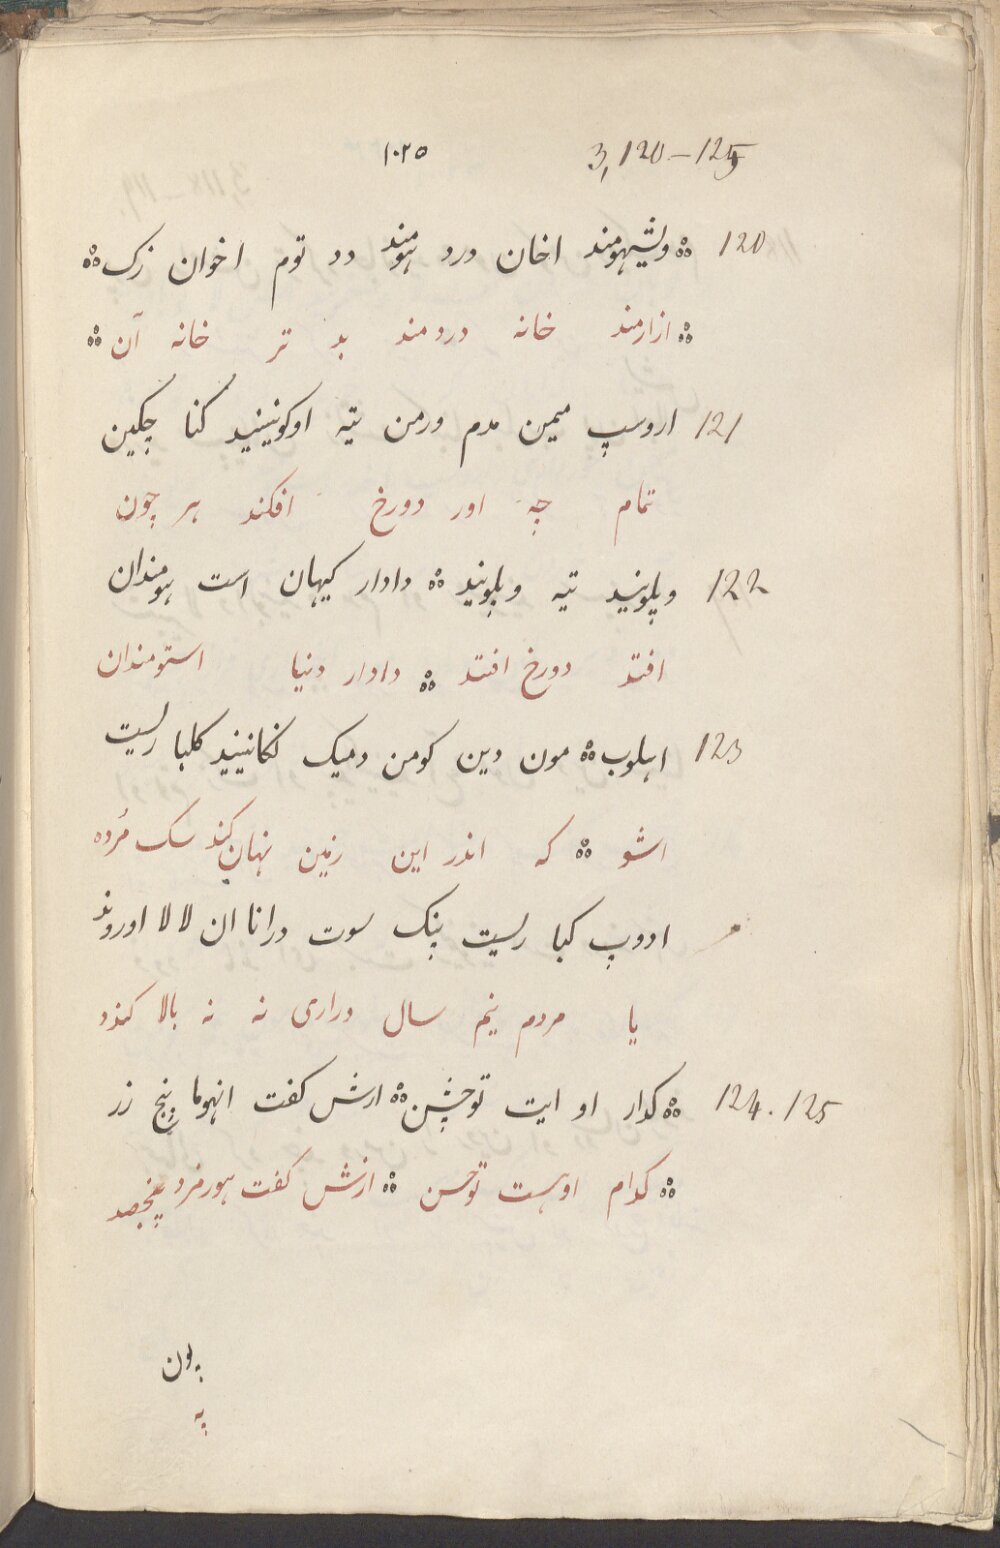 3,120–125 ١٠٢٥
120 ؞ ویشیهومند اخان درد هومند دد توم اخوان زک ؞
؞ ازارمند خانه دردمند بد تر خانه آن ؞
121 اروسپ میمن مدم ورمن تیه اوکونینید کنا چکین
تمام چه اور دورخ افکند هر چون
122 وپلونید تیه وپلونید ؞ دادار کیهان است هومندان
افتد دورخ افتد ؞ دادار دنیا استومندان
123 اهلوب ؞ مون دین کومن دمیک نکانینید کلبا ریست
اشو ؞ که اندر این زمین نهان کند سک مُرده
ادوپ کبا ریست پنک سوت درانا ان لا لا اوروند
یا مردم نیم سال دراری نه نه بالا کندد
124.125 ؞ کدار او ایت توجشن ؞ ارش کفت انهوما پنج زر
؞ کدام اوهست توحسن ؞ ازش کفت هورمزد پنجصد
پون
په